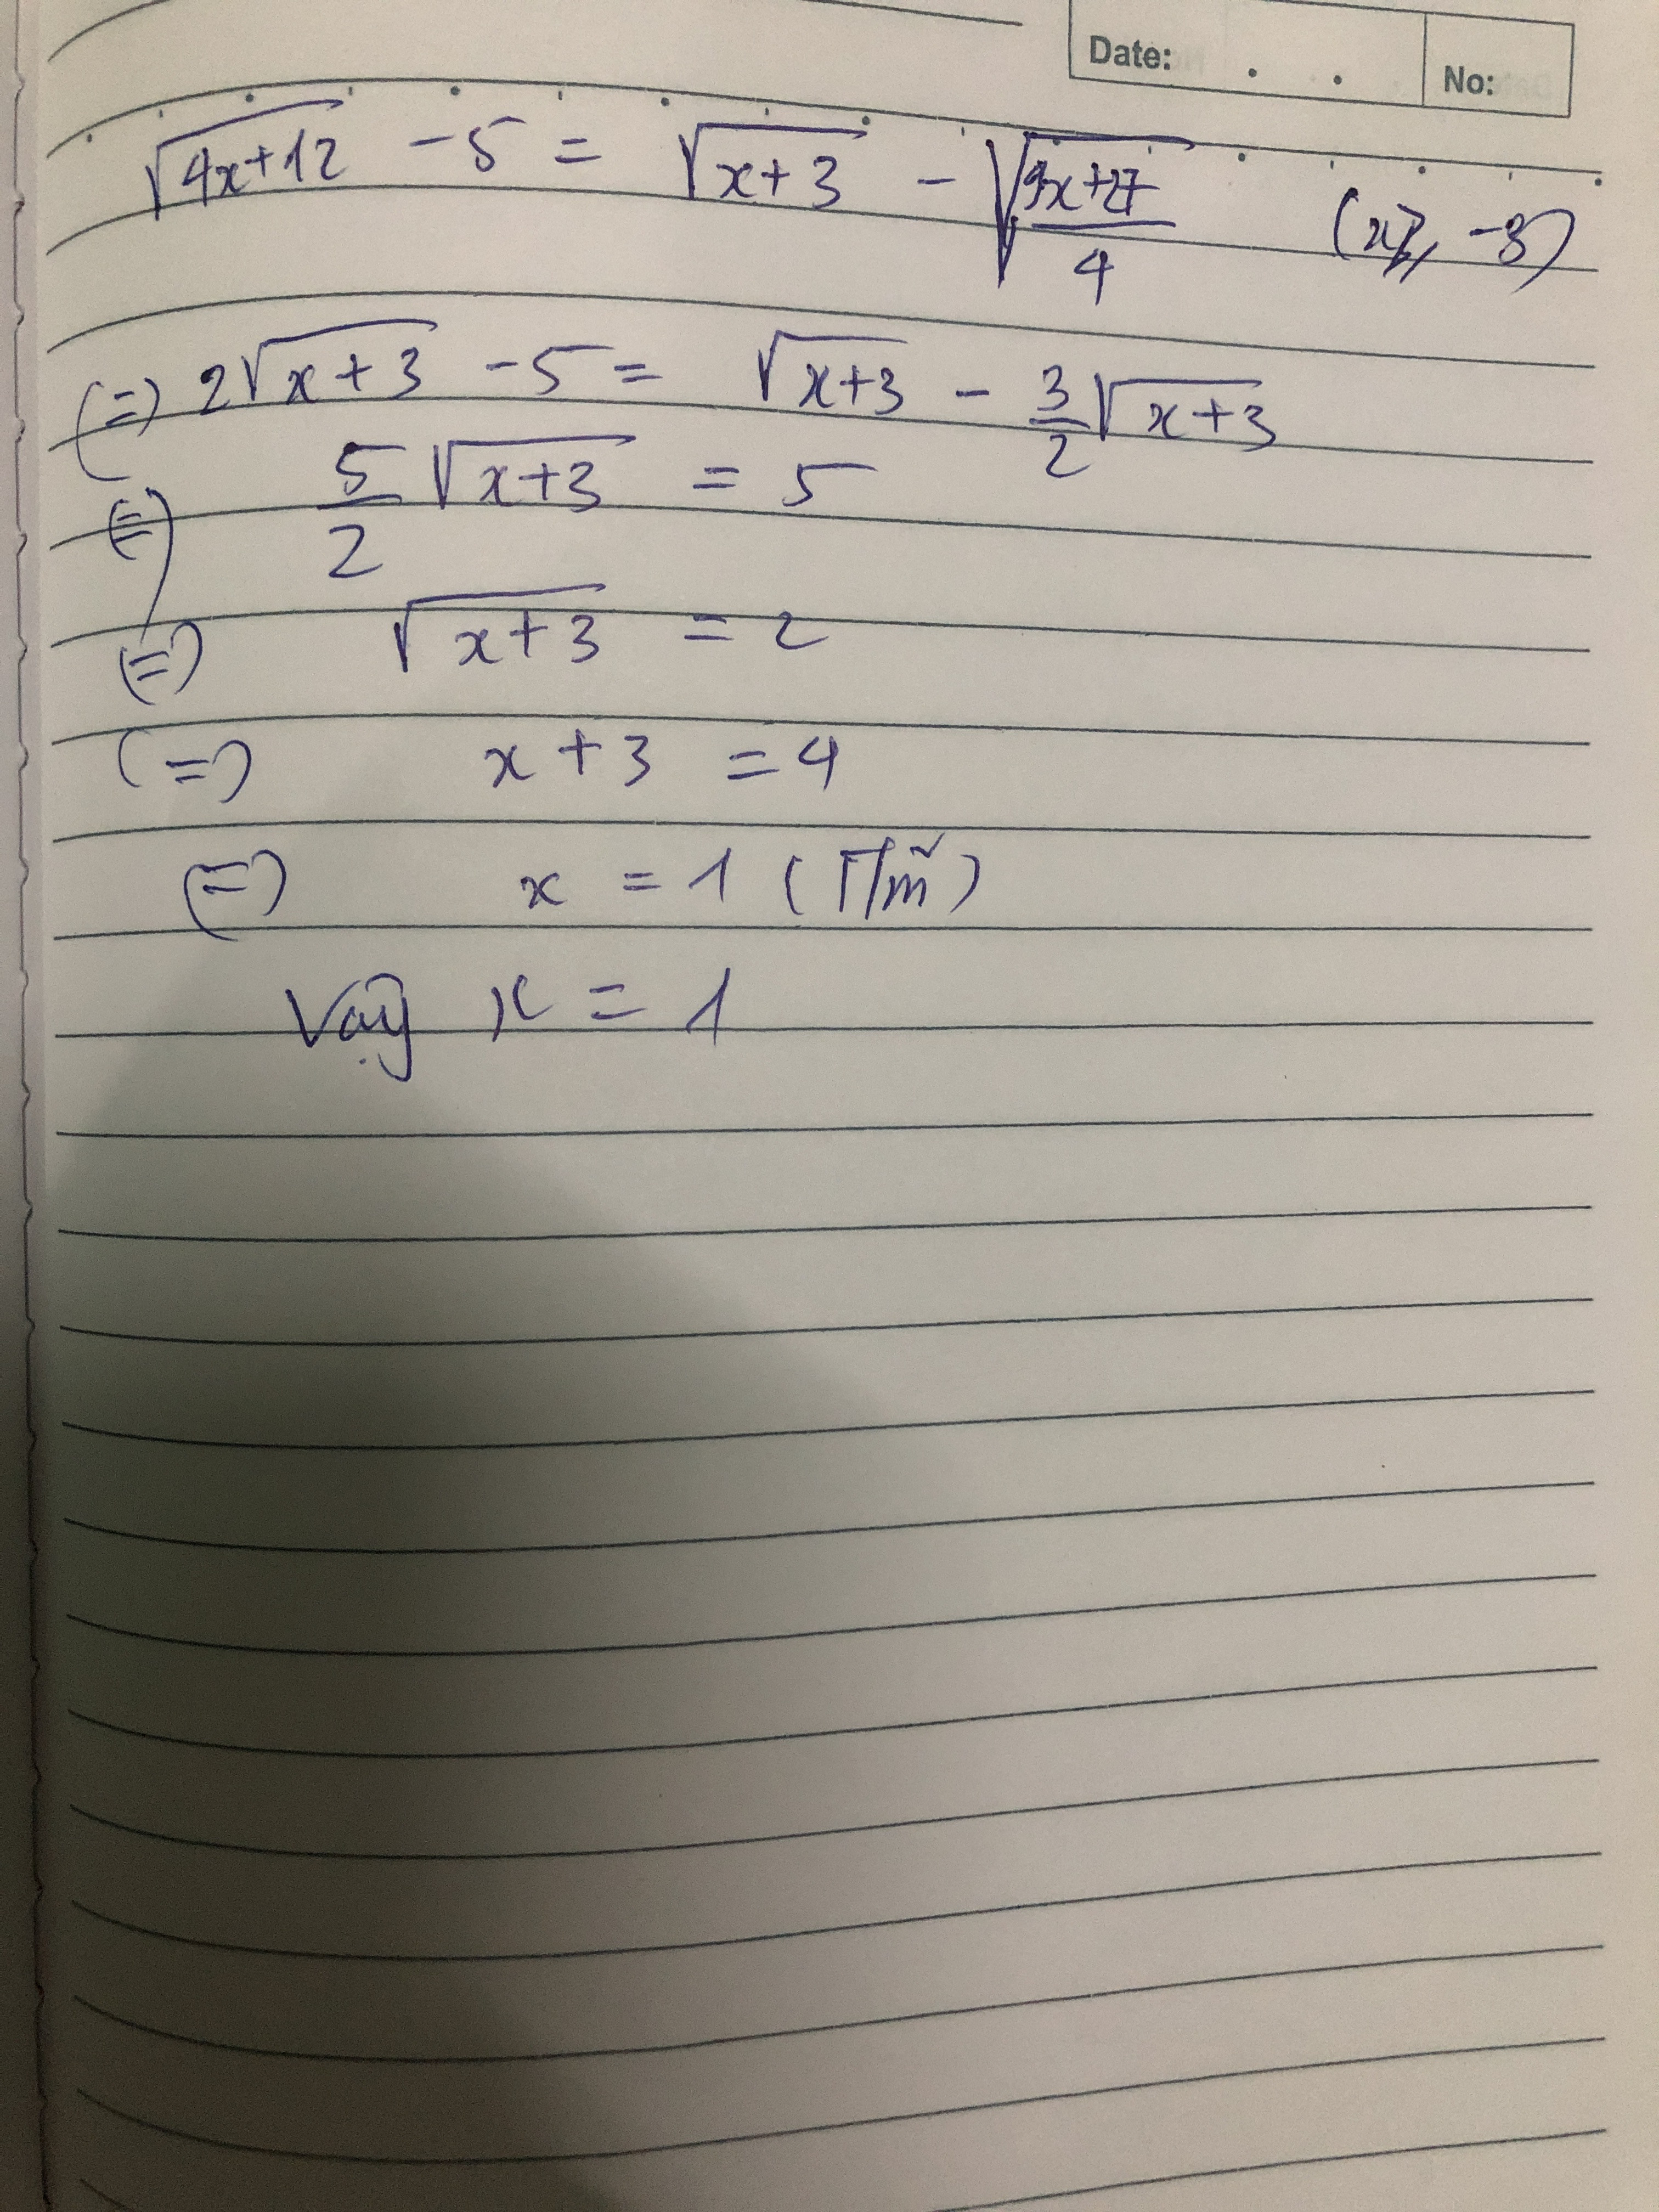 Date: No:
√(4x+12) - 5 = √(x+3) - √((9x+27)/4) (x ≥ -3)
(=) 2√(x+3) - 5 = √(x+3) - 3/2 √(x+3)
(=) 5/2 √(x+3) = 5
(=) √(x+3) = 2
(=) x + 3 = 4
(=) x = 1 (T/m)
Vậy x = 1